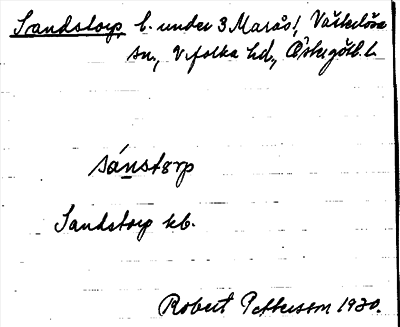 Sandstorp, l. under 3 Marås, Västerlösa
sn, Vifolka hd, Östergötl. l.
sánstørp
Sandstorp kb.
Robert Pettersson 1930.